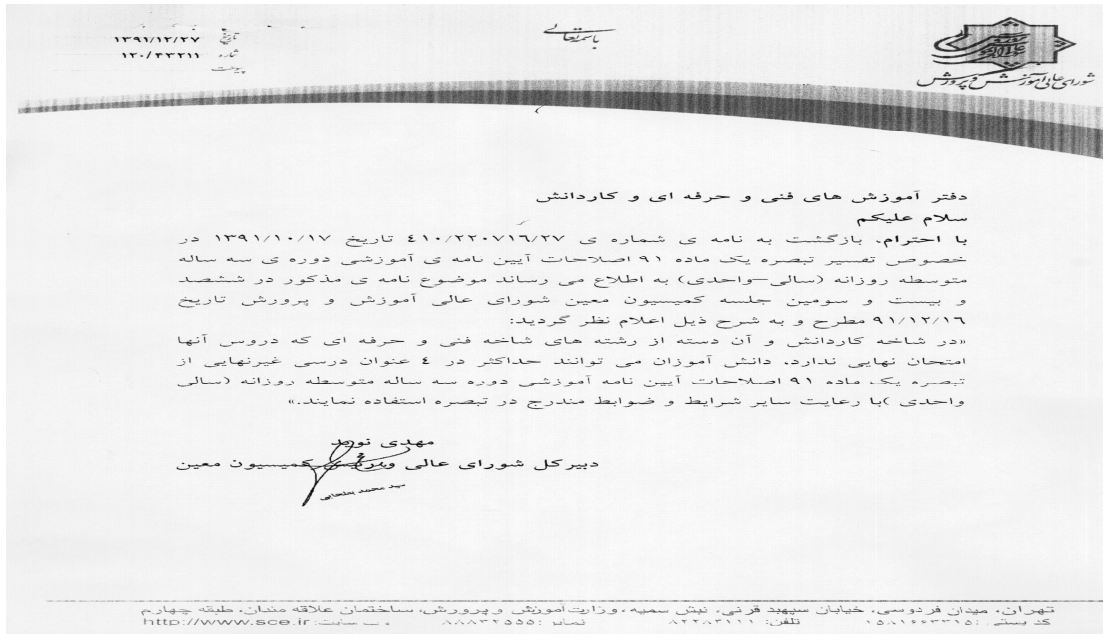 باسمه تعالی
تاریخ ۱۳۹۱/۱۲/۲۷
شماره ۱۲۰/۴۳۲۱۱
پیوست
شورای عالی آموزش و پرورش
دفتر آموزش های فنی و حرفه ای و کاردانش
سلام علیکم
با احترام، بازگشت به نامه ی شماره ی ٤١٠/٢٢٠٧١٦/٢٧ تاریخ ١٣٩١/١٠/١٧ در
خصوص تفسیر تبصره یک ماده ٩١ اصلاحات آیین نامه ی آموزشی دوره ی سه ساله
متوسطه روزانه (سالی-واحدی) به اطلاع می رساند موضوع نامه ی مذکور در ششصد
و بیست و سومین جلسه کمیسیون معین شورای عالی آموزش و پرورش تاریخ
٩١/١٢/١٦ مطرح و به شرح ذیل اعلام نظر گردید:
«در شاخه کاردانش و آن دسته از رشته های شاخه فنی و حرفه ای که دروس آنها
امتحان نهایی ندارد، دانش آموزان می توانند حداکثر در ٤ عنوان درسی غیرنهایی از
تبصره یک ماده ٩١ اصلاحات آیین نامه آموزشی دوره سه ساله متوسطه روزانه (سالی
واحدی )با رعایت سایر شرایط و ضوابط مندرج در تبصره استفاده نمایند.»
مهدی نوید
دبیرکل شورای عالی و کمیسیون معین
تهران، میدان فردوسی، خیابان سپهبد قرنی، نبش سمیه، وزارت آموزش و پرورش، ساختمان علاقه مندان، طبقه چهارم
کد پستی: ۱۵۸۱۶۶۳۳۱۵ تلفن: ۸۲۲۸۳۱۱۱ نمابر: ۸۸۸۳۲۵۵۵ وب سایت: http://www.sce.ir